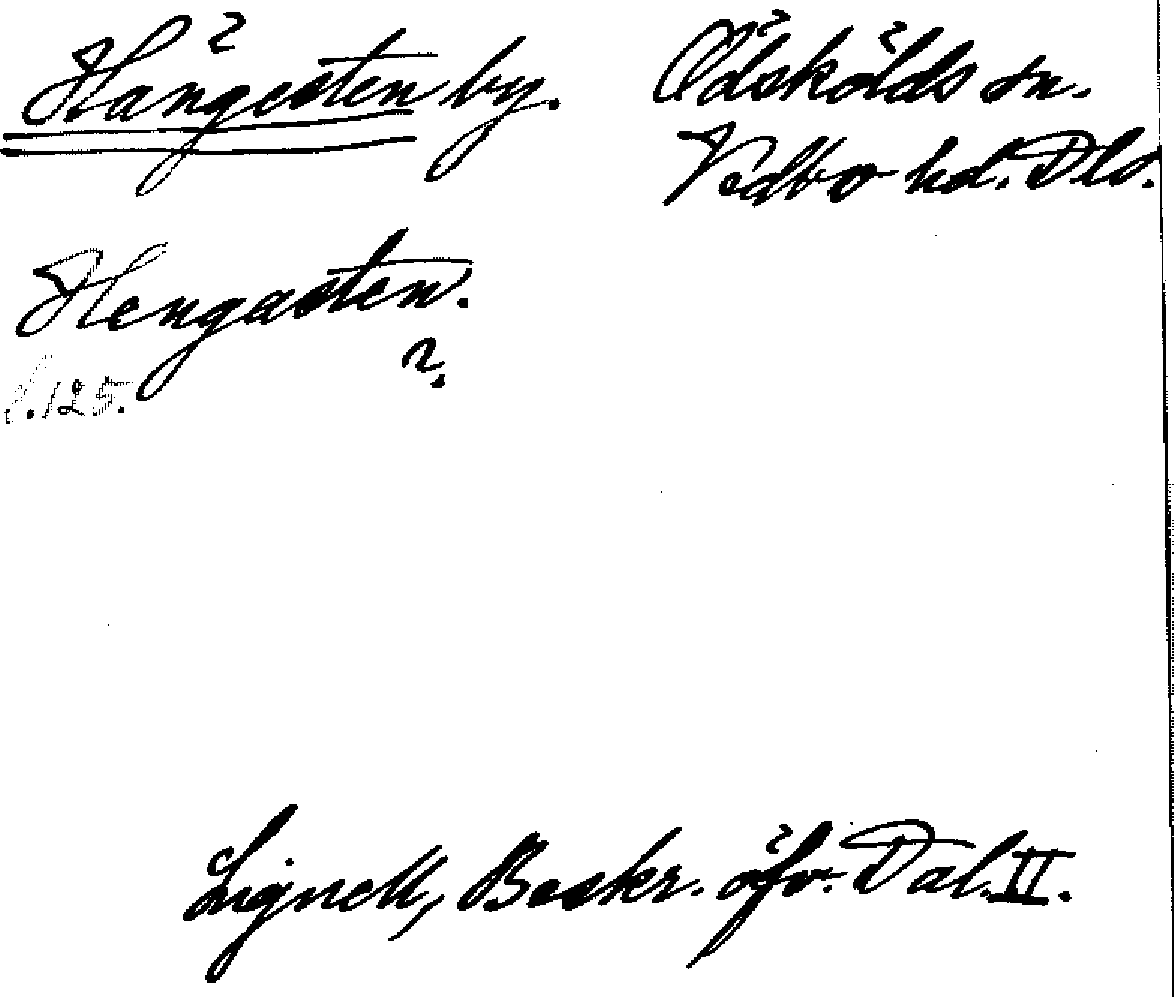 Hängesten by. Ödskölds sn.
Vedbo hd. Dld.
Hengasten.
s. 125.
Lignell, Beskr. öfv. Dal. II.